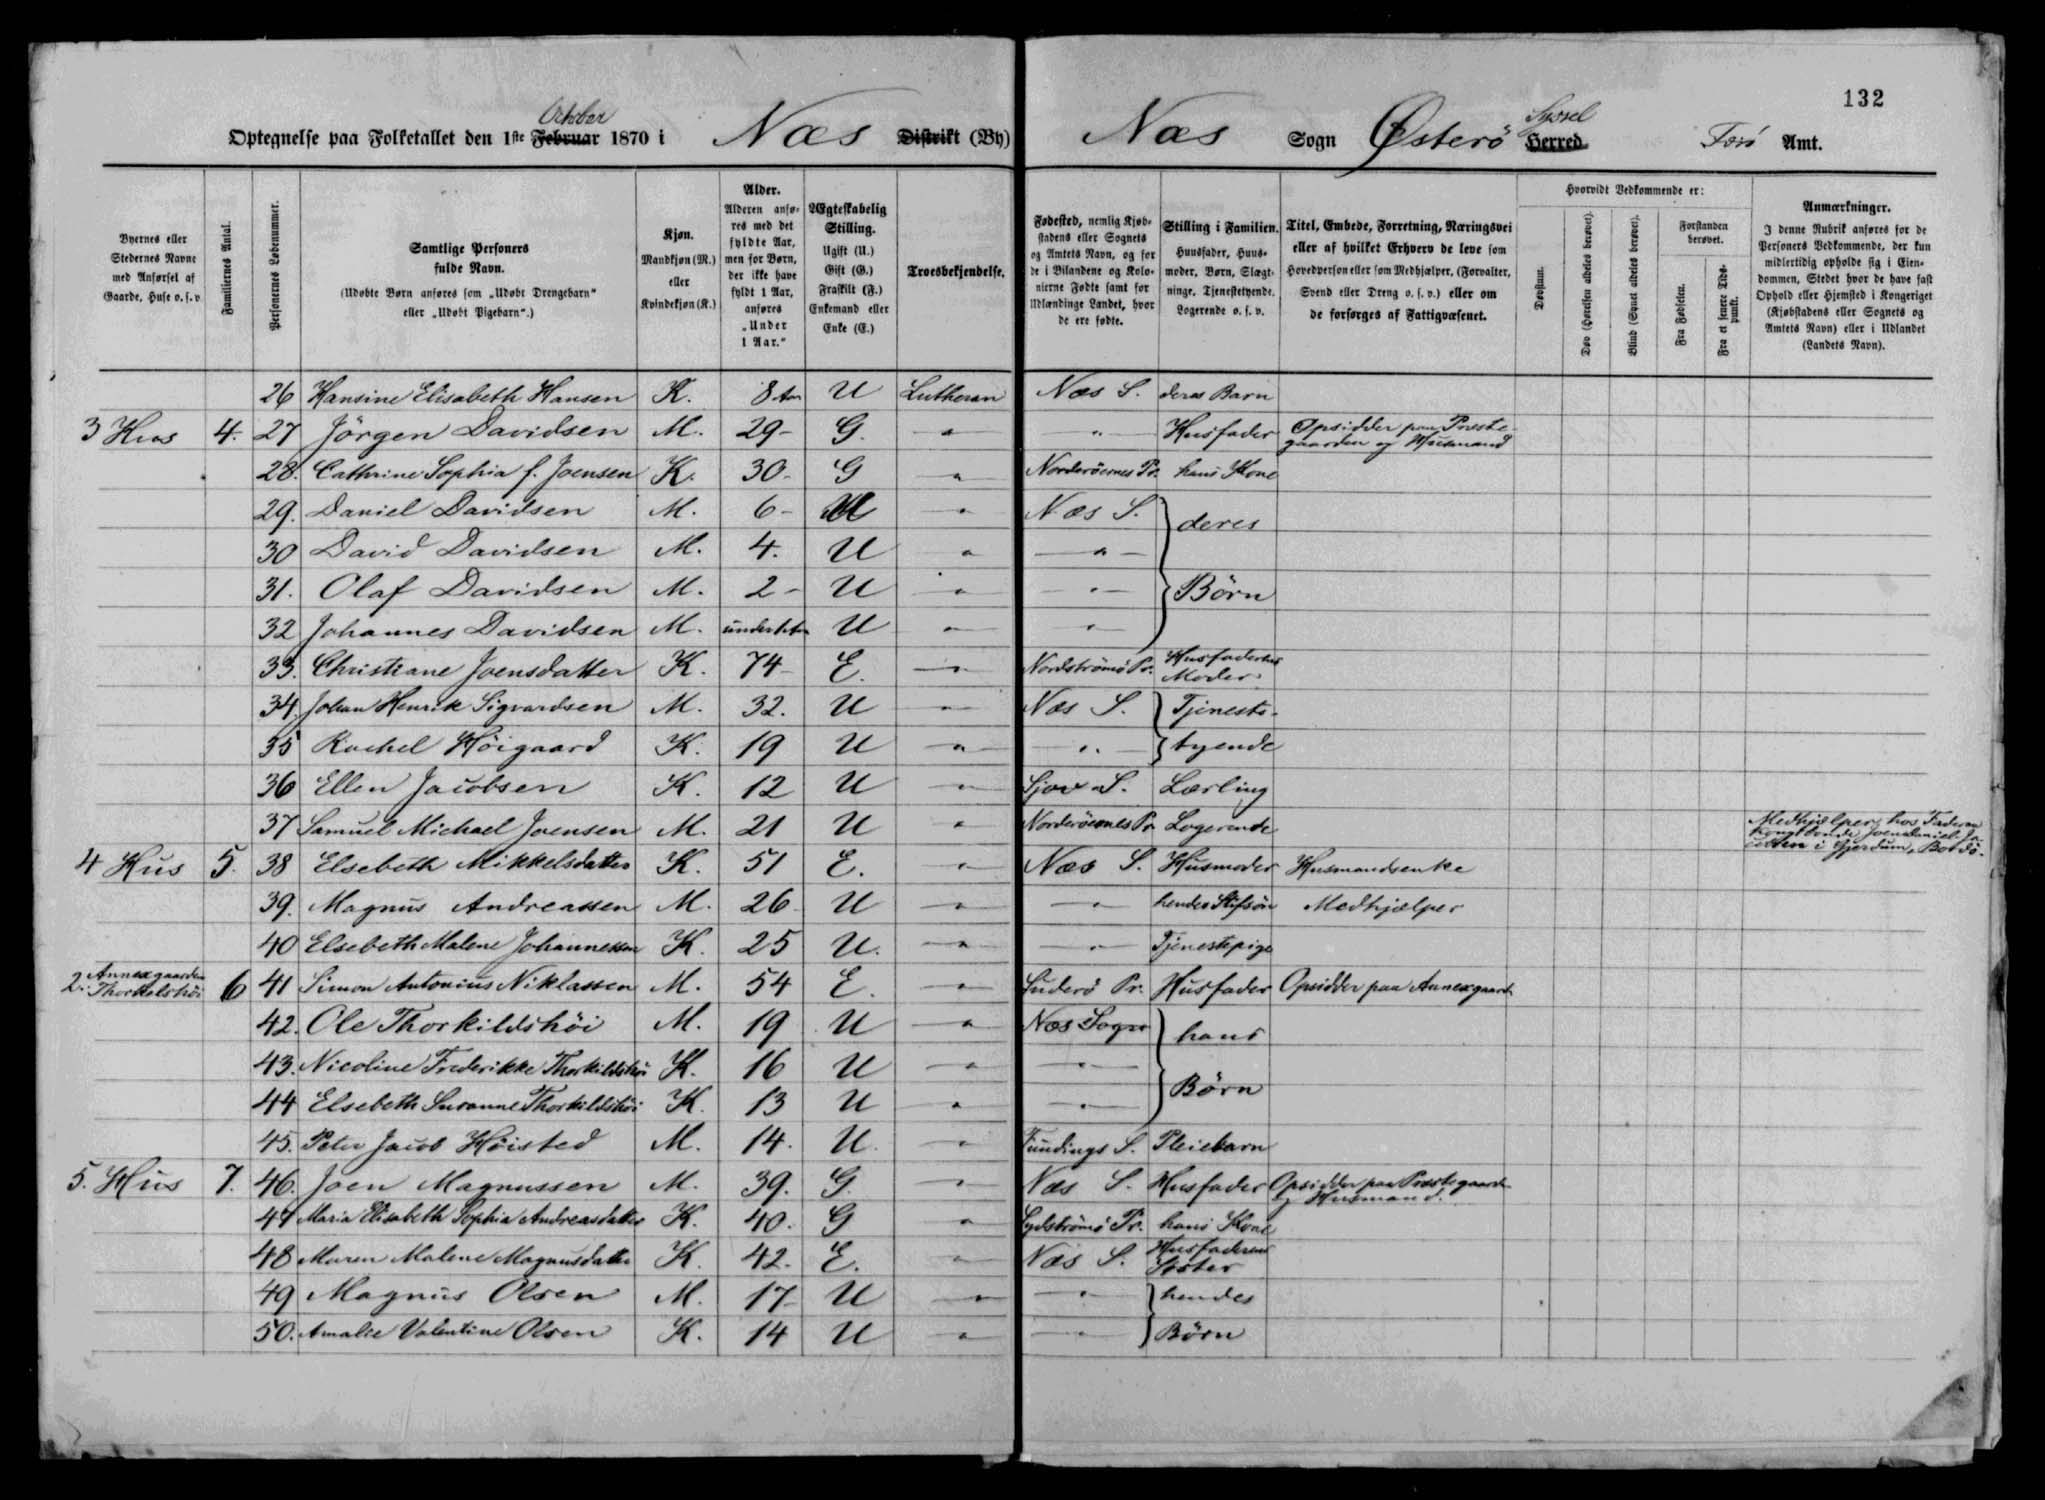 132
October
Syssel
Optegnelse paa Folketallet den 1ste Februar 1870 i Næs Distrikt (By) Næs Sogn Østerö Herred Færö Amt.
Byernes eller Stedernes Navne med Anførsel af Gaarde, Huse o. s. v
Familiernes Antal.
Personernes Løbenummer.
Samtlige Personers fulde Navn. (Udøbte Børn anføres som „Udøbt Drengebarn“ eller „Udøbt Pigebarn“.)
Kjøn. Mandkjøn (M.) eller Kvindekjøn (K.)
Alder. Alderen anføres med det fyldte Aar, men for Børn, der ikke have fyldt 1 Aar, anføres „Under 1 Aar.“
Ægteskabelig Stilling. Ugift (U.) Gift (G.) Fraskilt (F.) Enkemand eller Enke (E.)
Troesbekjendelse.
Fødested, nemlig Kjøbstadens eller Sognets og Amtets Navn, og for de i Bilandene og Kolonierne Fødte samt for Udlændinge Landet, hvor de ere fødte.
Stilling i Familien. Huusfader, Huusmoder, Børn, Slægtninge, Tjenestetyende, Logerende o. s. v.
Titel, Embede, Forretning, Næringsvei eller af hvilket Erhverv de leve som Hovedperson eller som Medhjælper, (Forvalter, Svend eller Dreng o. s. v.) eller om de forsørges af Fattigvæsenet.
Hvorvidt Vedkommende er:
Døvstum.
Døv (Hørelsen aldeles berøvet).
Blind (Synet aldeles berøvet).
Forstanden berøvet.
Fra Fødselen.
Fra et senere Tidspunkt.
Anmærkninger. I denne Rubrik anføres for de Personers Vedkommende, der kun midlertidig opholde sig i Eiendommen, Stedet hvor de have fast Ophold eller Hjemsted i Kongeriget (Kjøbstadens eller Sognets og Amtets Navn) eller i Udlandet (Landets Navn).
26 Hansine Elisabeth Hansen K. 8 Aar U Lutheran Næs S. deres Barn
3 Hus 4. 27 Jörgen Davidsen M. 29- G. " " Husfader Opsidder paa Præstegaarden og Husmand
28. Cathrine Sophia f. Joensen K. 30- G " Norderöernes Pr. hans Kone
29. Daniel Davidsen M. 6- U " Næs S. } deres
30 David Davidsen M. 4. U " "
31. Olaf Davidsen M. 2- U " " } Börn
32 Johannes Davidsen M. under 1 Aar U " "
33. Christiane Joensdatter K. 74- E. " Nordströmö Pr. Husfaderens Moder
34 Johan Henrik Sigvardsen M. 32. U " Næs S. } Tjeneste-
35 Rachel Höigaard K. 19 U " " } tyende
36 Ellen Jacobsen K. 12 U " Sjov S. Lærling
37 Samuel Michael Joensen M. 21 U " Norderöernes Pr. Logerende Medhjælper hos Faderen Kongsbonde Joen
4 Hus 5. 38 Elsebeth Mikkelsdatter K. 51 E. " Næs S. Husmoder Husmandsenke
39. Magnus Andreassen M. 26- U " " hendes Stifsön Medhjælper
40 Elsebeth Malene Johannessen K. 25 U. " " Tjenestepige
2. Annexgaarden Thorkelshöi 6 41 Simon Antonius Niklassen M. 54 E. " Suderö Pr. Husfader Opsidder paa Annexgaard
42. Ole Thorkildshöi M. 19 U " Næs Sogn } hans
43. Nicoline Frederikke Thorkildshöi K. 16 U " "
44 Elsebeth Susanne Thorkildshöi K. 13 U " " } Börn
45. Peter Jacob Höisted M. 14. U. " Fundings S. Pleiebarn
5. Hus 7. 46. Joen Magnussen M. 39. G. " Næs S. Husfader Opsidder paa Præstegaarden og Husmand.
47 Maria Elisabeth Sophia Andreasdatter K. 40. G " Sydströmö Pr. hans Kone
48 Maren Malene Magnusdatter K. 42. E. " Næs S. Husfaderens Söster
49 Magnus Olsen M. 17- U " " } hendes
50. Amalie Valentine Olsen K. 14 U " " } Börn